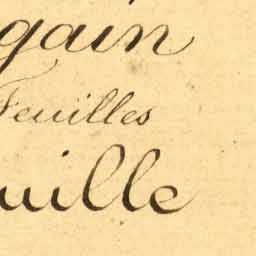 gain
Feuilles
uille